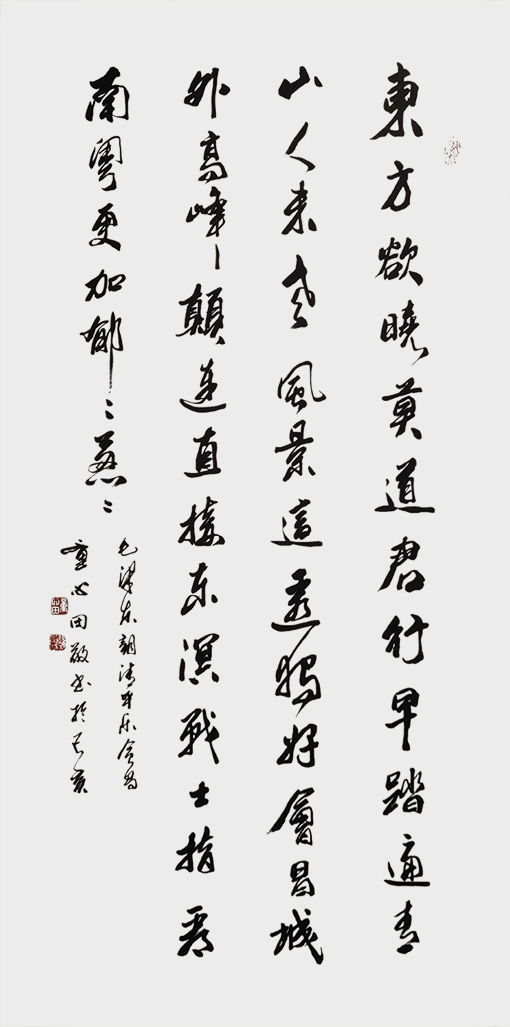 東方欲曉莫道君行早踏遍青
山人未老風景這邊獨好會昌城
外高峰〻顛連直接东溟戰士指看
南粵更加郁〻葱〻
毛澤东詞清平乐會昌
童心田敬书於己亥